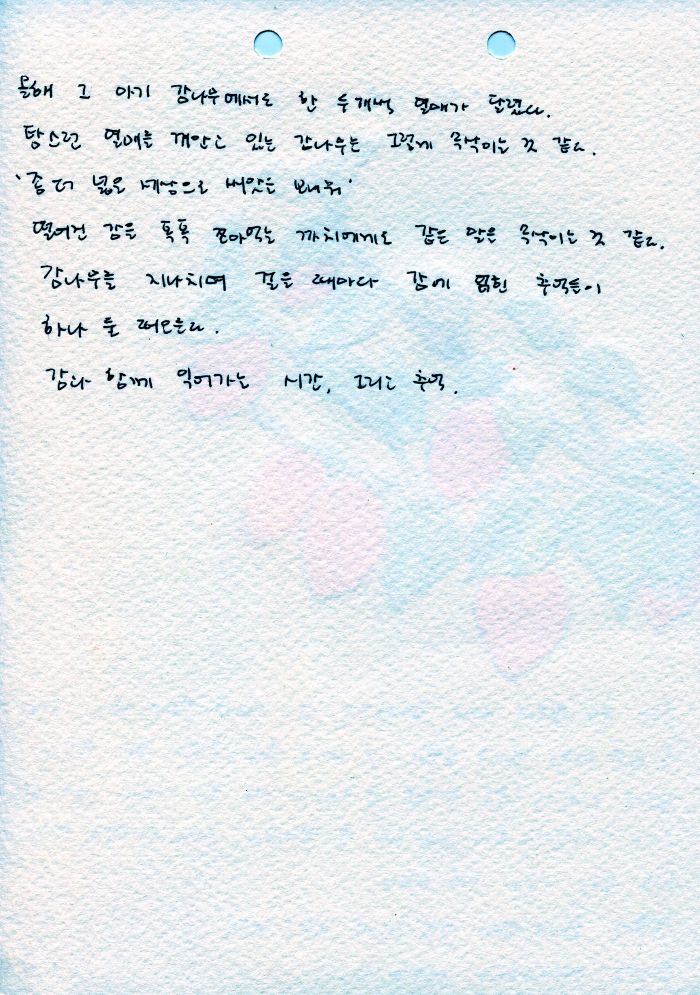 올해 그 아기 감나무에서도 한 두개씩 열매가 달렸다.
탐스런 열매를 껴안고 있는 감나무는 그렇게 속삭이는 것 같다.
'좀 더 넓은 세상으로 씨앗을 보내줘'
떨어진 감을 톡톡 쪼아먹는 까치에게도 같은 말은 속삭이는 것 같다.
감나무를 지나치며 걸을 때마다 감에 얽힌 추억들이
하나 둘 떠오른다.
감과 함께 익어가는 시간, 그리고 추억.